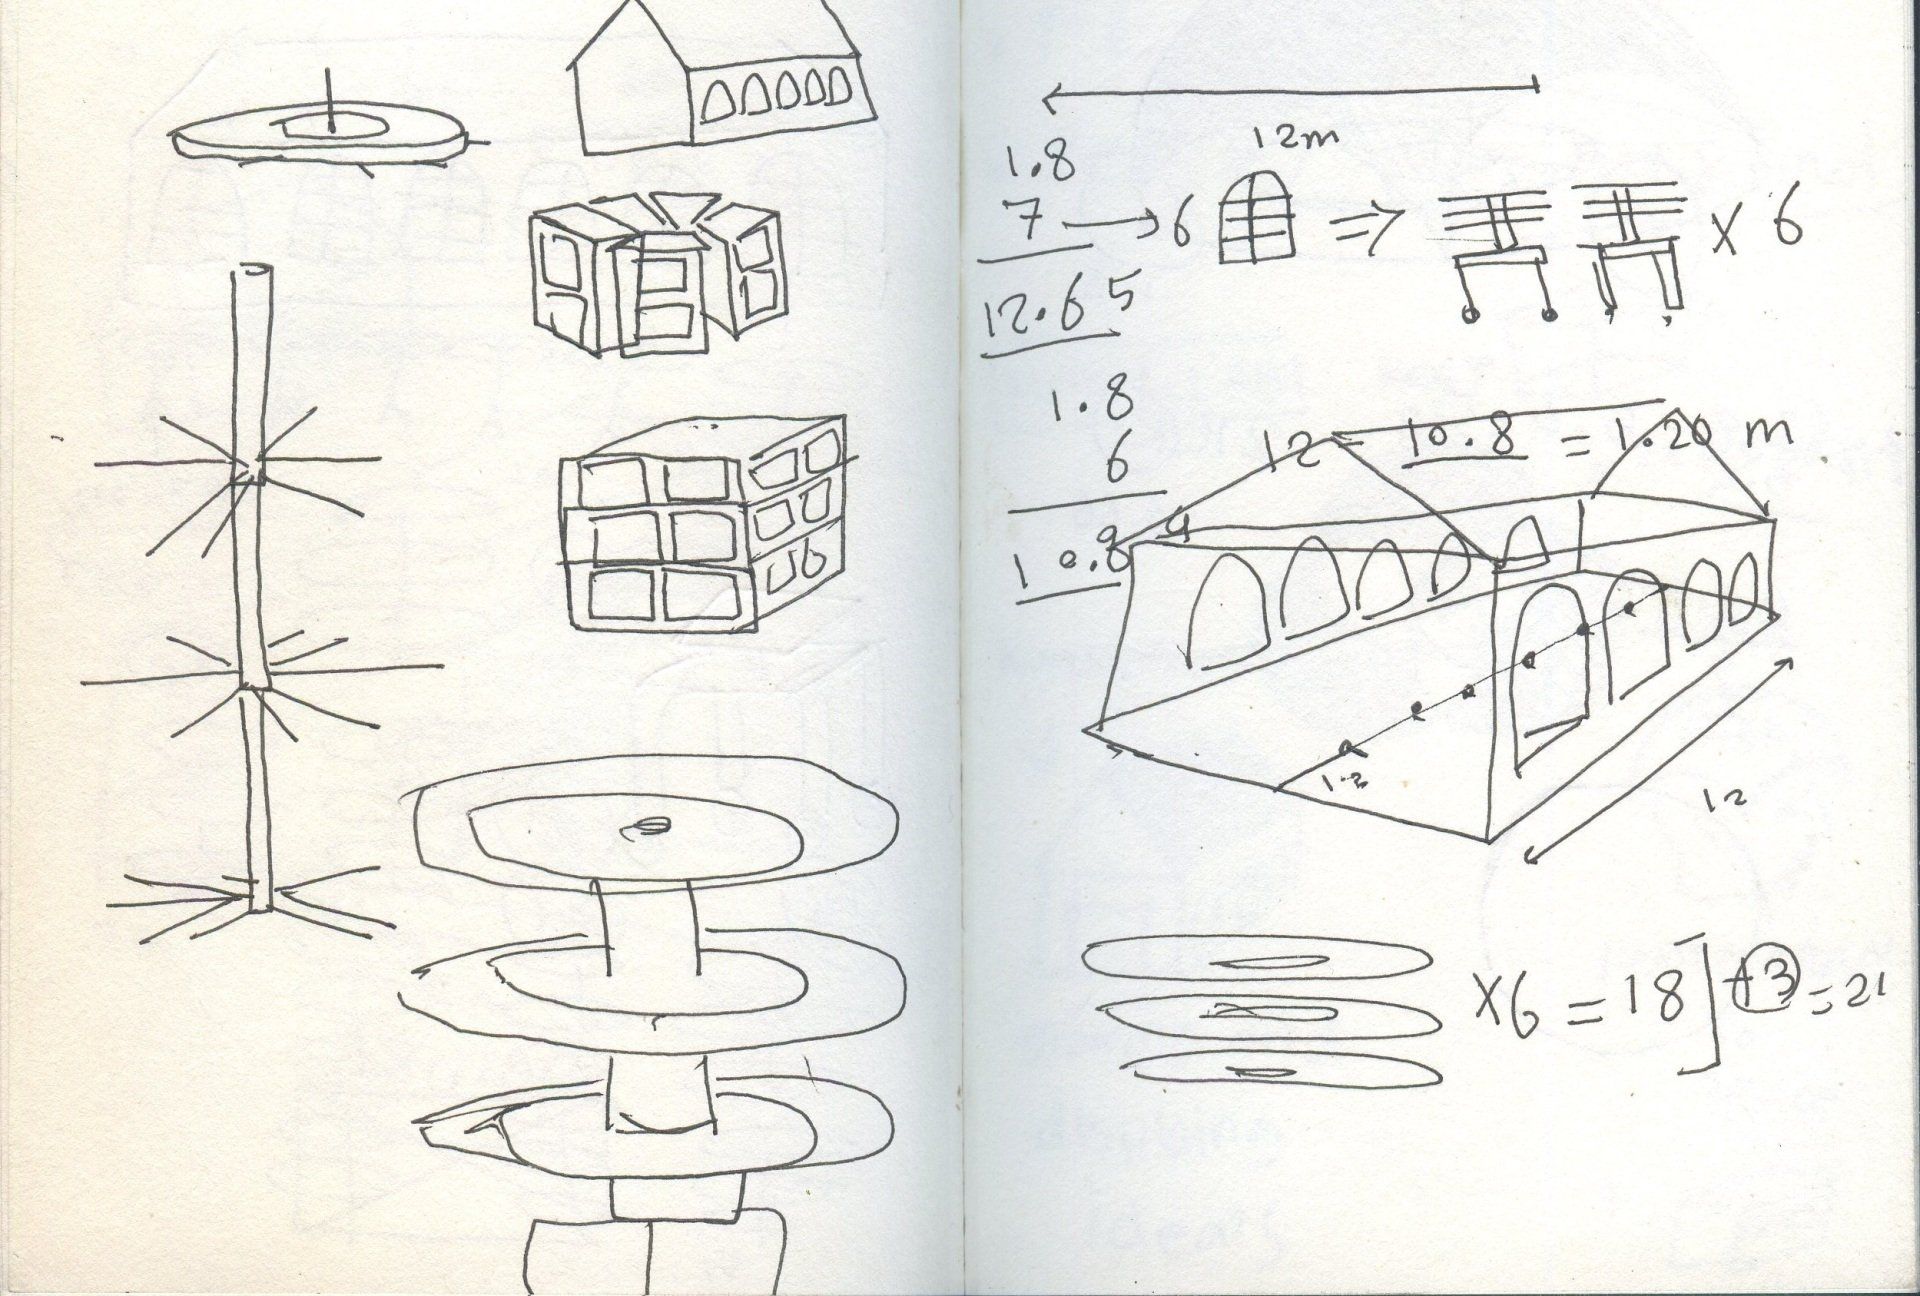 12m
1.8
7 → 6 ⇒ x 6
12.65
1.8
6
10.8
12 - 10.8 = 1.20 m
1.2
12
x6 = 18] +3 = 21